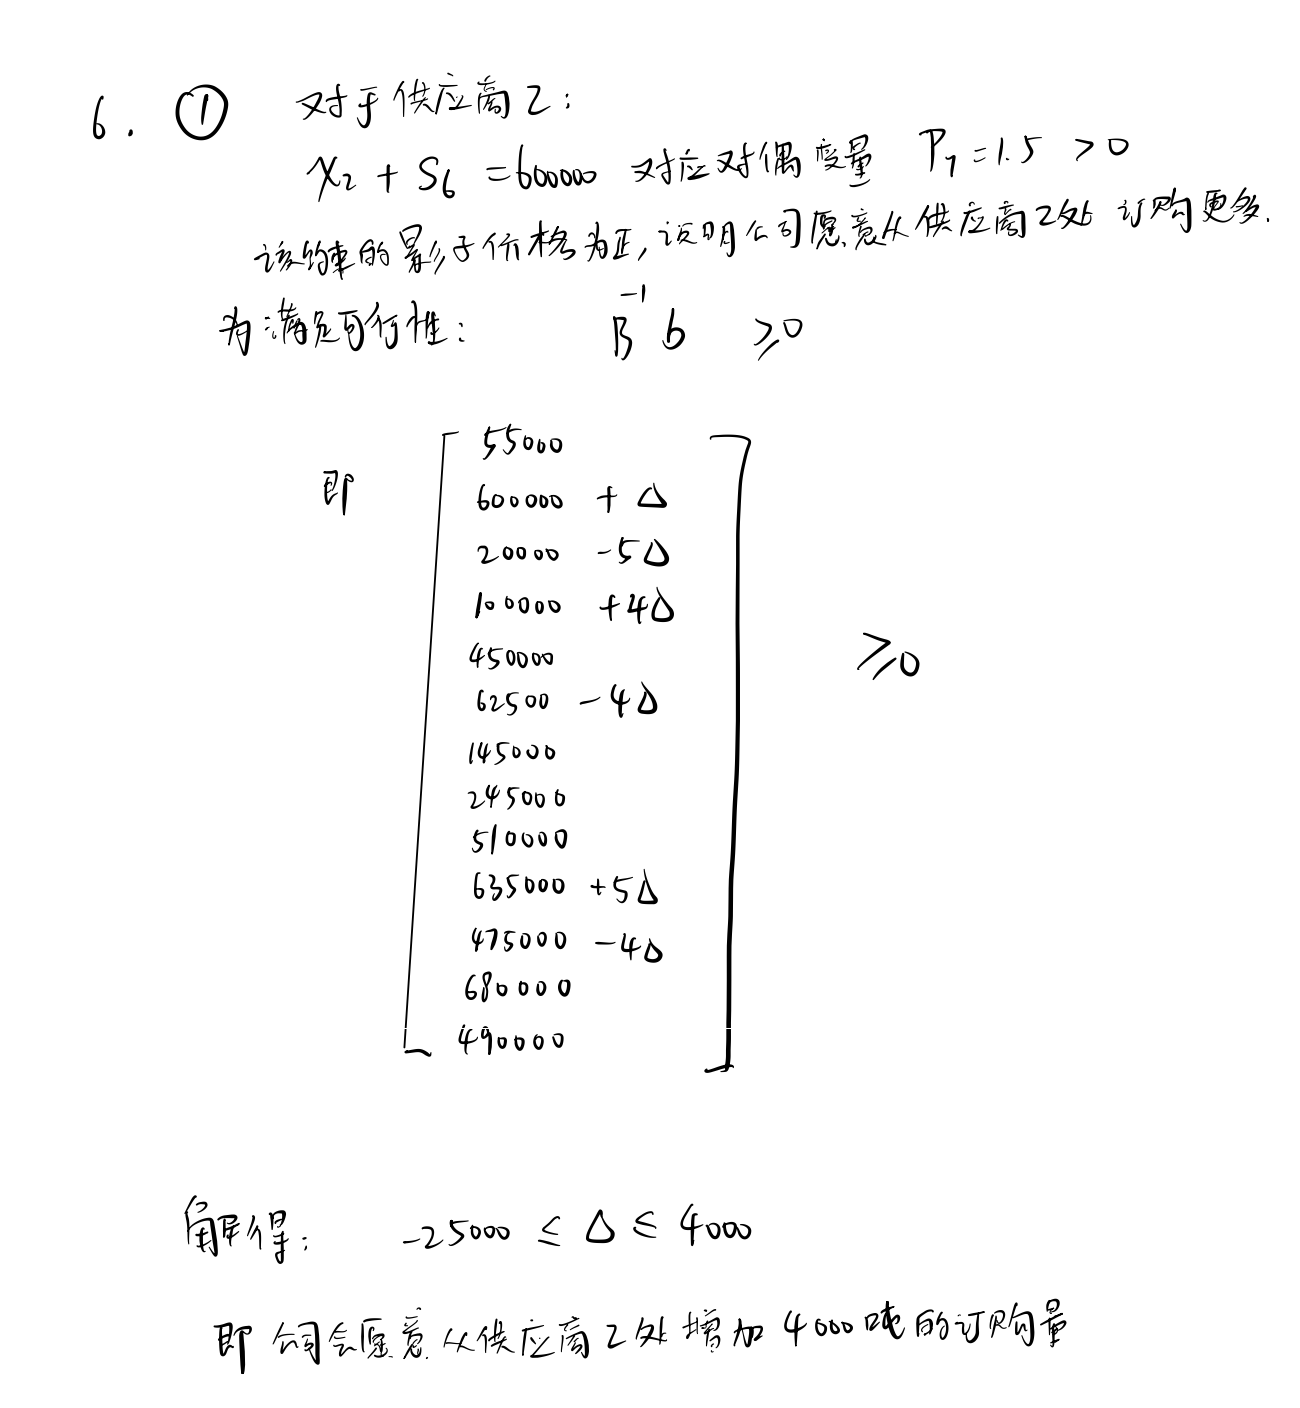 6. ① 对于供应商2:
x₂ + S₆ = 600000 对应对偶变量 P₇ = 1.5 > 0
该约束的影子价格为正,说明公司愿意从供应商2处订购更多.
为满足可行性: B⁻¹ b ≥0
即
55000
600000 + Δ
20000 -5Δ
100000 +4Δ
450000
62500 -4Δ
145000
245000
510000
635000 +5Δ
475000 -4Δ
680000
490000
≥0
解得: -25000 ≤ Δ ≤ 4000
即公司会愿意从供应商2处增加4000吨的订购量